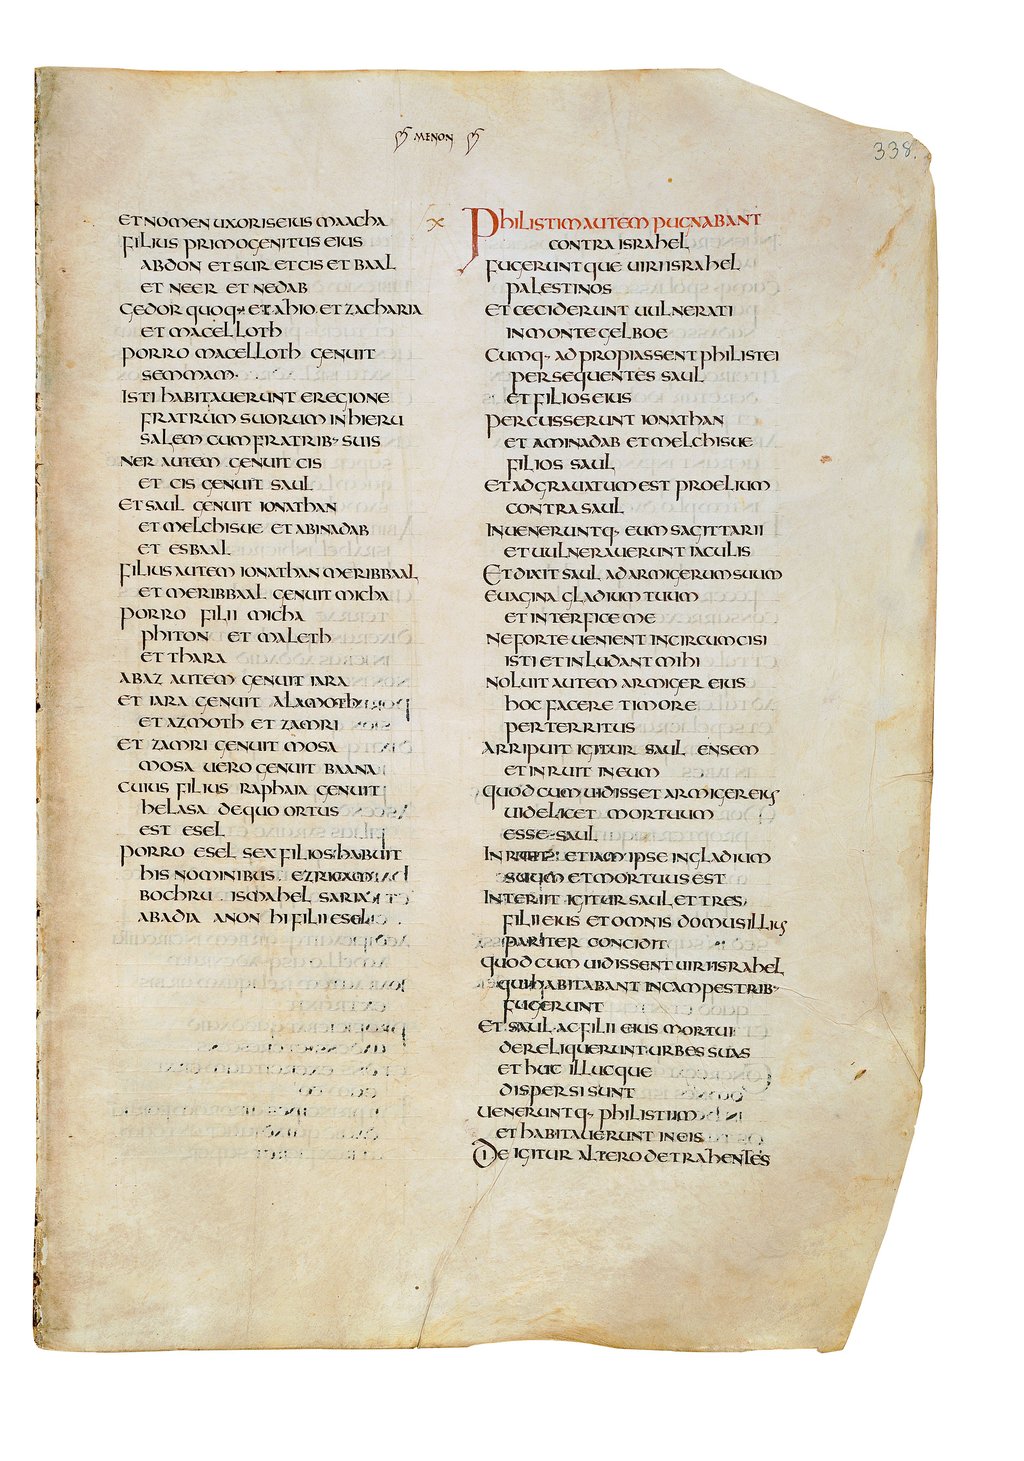 MENON
338.
ET NOMEN UXORIS EIUS MAACHA
FILIUS PRIMOGENITUS EIUS
ABDON ET SUR ET CIS ET BAAL
ET NEER ET NEDAB
GEDOR QUOQ· ET AHIO· ET ZACHARIA
ET MACELLOTH
PORRO MACELLOTH GENUIT
SEMMAM·
ISTI HABITAVERUNT E REGIONE
FRATRUM SUORUM IN HIERU
SALEM CUM FRATRIB· SUIS
NER AUTEM GENUIT CIS
ET CIS GENUIT SAUL
ET SAUL GENUIT IONATHAN
ET MELCHISUE ET ABINADAB
ET ESBAAL
FILIUS AUTEM IONATHAN MERIBBAAL
ET MERIBBAAL GENUIT MICHA
PORRO FILII MICHA
PHITON ET MALETH
ET THARA
ABAZ AUTEM GENUIT IARA
ET IARA GENUIT ALAMOTH
ET AZMOTH ET ZAMRI
ET ZAMRI GENUIT MOSA
MOSA UERO GENUIT BAANA
CUIUS FILIUS RAPHAIA GENUIT
HELASA DE QUO ORTUS
EST ESEL
PORRO ESEL SEX FILIOS HABUIT
HIS NOMINIBUS· EZRICAM
BOCHRU· ISMAHEL SARIA
ABADIA ANON HI FILII ESEL
X
PHILISTIM AUTEM PUGNABANT
CONTRA ISRAHEL
FUGERUNTQUE UIRI ISRAHEL
PALESTINOS
ET CECIDERUNT UULNERATI
IN MONTE GELBOE
CUMQ· ADPROPIASSENT PHILISTEI
PERSEQUENTES SAUL
ET FILIOS EIUS
PERCUSSERUNT IONATHAN
ET AMINADAB ET MELCHISUE
FILIOS SAUL
ET ADGRAUATUM EST PROELIUM
CONTRA SAUL
INUENERUNTQ· EUM SAGITTARII
ET UULNERAUERUNT IACULIS
ET DIXIT SAUL AD ARMIGERUM SUUM
EUAGINA GLADIUM TUUM
ET INTERFICE ME
NE FORTE UENIENT INCIRCUMCISI
ISTI ET INLUDANT MIHI
NOLUIT AUTEM ARMIGER EIUS
HOC FACERE TIMORE
PERTERRITUS
ARRIPUIT IGITUR SAUL ENSEM
ET INRUIT IN EUM
QUOD CUM UIDISSET ARMIGER EIUS
UIDELICET MORTUUM
ESSE SAUL
INRUIT ETIAM IPSE IN GLADIUM
SUUM ET MORTUUS EST
INTERIIT IGITUR SAUL ET TRES
FILII EIUS ET OMNIS DOMUS ILLIUS
PARITER CONCIDIT
QUOD CUM UIDISSENT UIRI ISRAHEL
QUI HABITABANT IN CAMPESTRIB·
FUGERUNT
ET SAUL AC FILII EIUS MORTUI
DERELIQUERUNT URBES SUAS
ET HUC ILLUCQUE
DISPERSI SUNT
UENERUNTQ· PHILISTIIM
ET HABITAUERUNT IN EIS
DIE IGITUR ALTERO DETRAHENTES